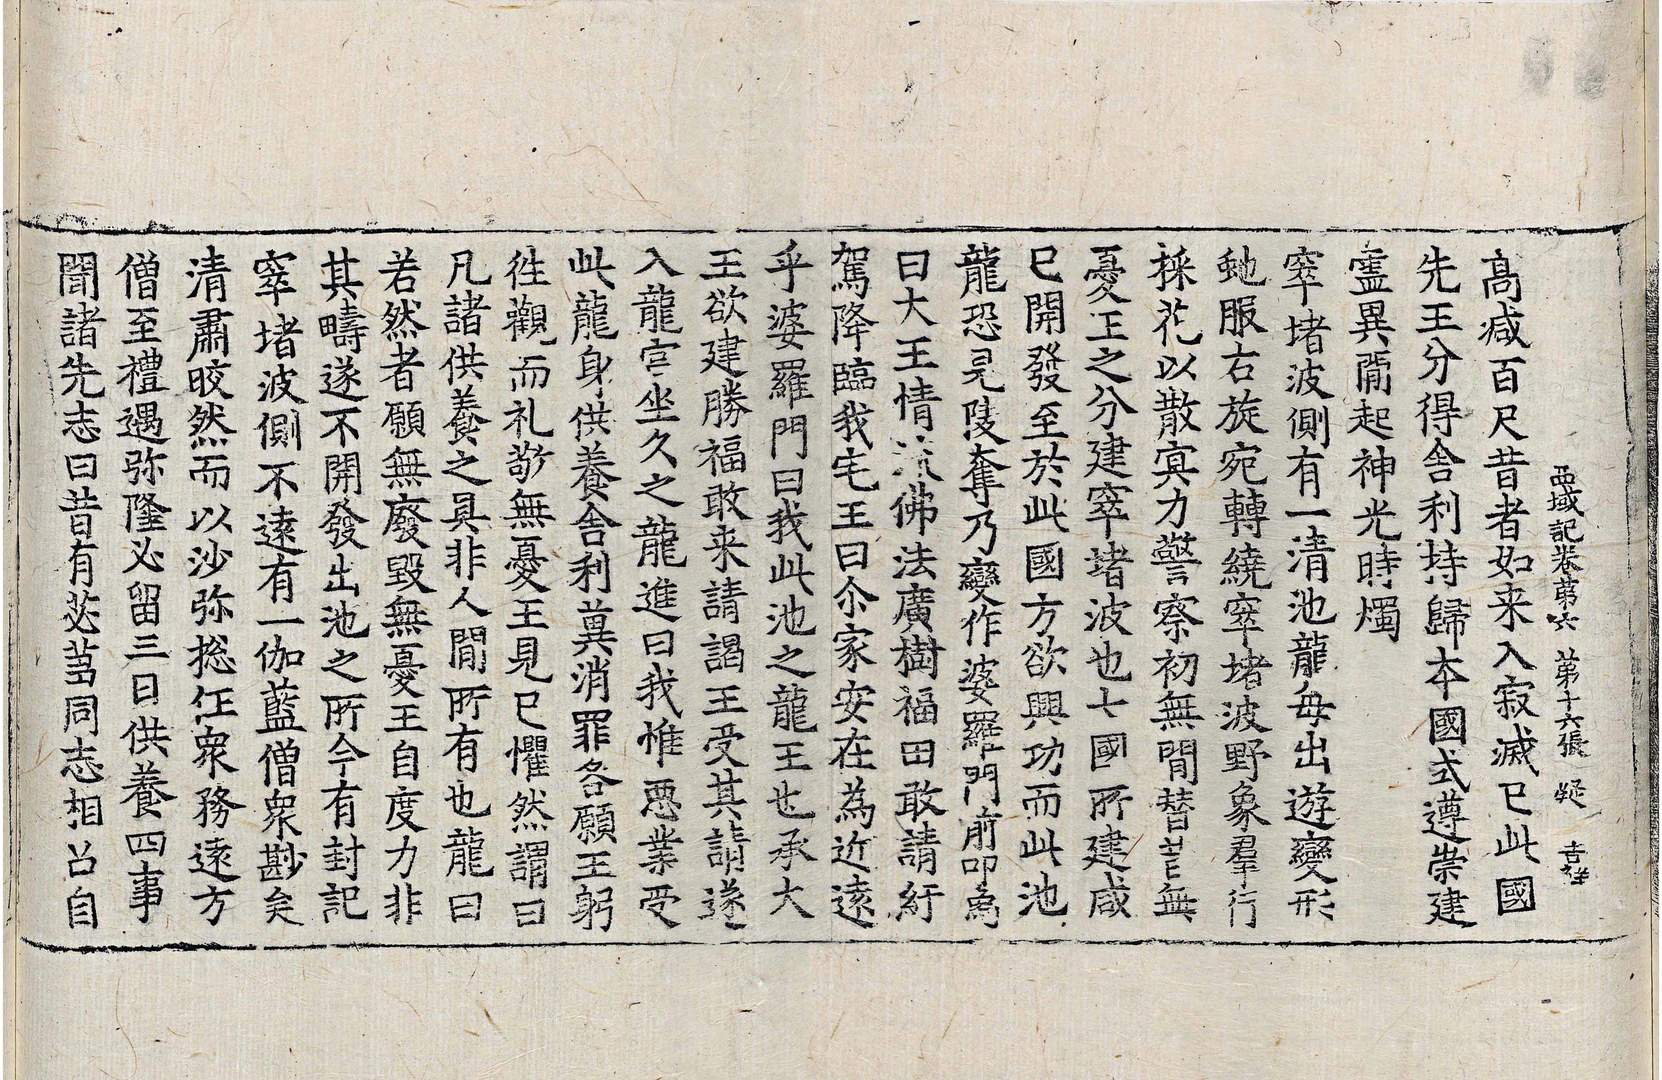 西域記卷第六 第十六張 疑 吉祥
高减百尺昔者如来入寂滅已此國
先王分得舍利持歸本國式遵崇建
靈異閒起神光時燭
窣堵波側有一清池龍每出遊變形
虵服右旋宛轉繞窣堵波野象羣行
採花以散冥力警察初無閒替昔無
憂王之分建窣堵波也七國所建咸
已開發至於此國方欲興功而此池
龍恐見陵奪乃變作婆羅門前叩為
曰大王情流佛法廣樹福田敢請紆
駕降臨我宅王曰尒家安在為近遠
乎婆羅門曰我此池之龍王也承大
王欲建勝福敢来請謁王受其請遂
入龍宮坐久之龍進曰我惟悪業受
此龍身供養舍利兾消罪咎願王躬
徃觀而礼敬無憂王見已懼然謂曰
凡諸供養之具非人閒所有也龍曰
若然者願無廢毀無憂王自度力非
其疇遂不開發出池之所今有封記
窣堵波側不遠有一伽藍僧衆尠矣
清肅皎然而以沙弥捴任衆務遠方
僧至禮遇弥隆必留三日供養四事
聞諸先志曰昔有苾芻同志相召自